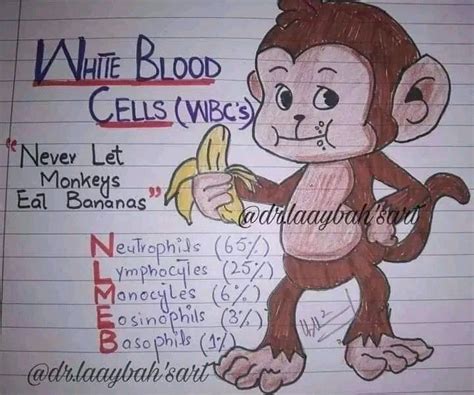 WHITE BLOOD
CELLS (WBC's)
"Never Let
Monkeys
Eat Bananas"
@dr.laaybah'sart
Neutrophils (65%)
Lymphocytes (25%)
Monocytes (6%)
Eosinophils (3%)
Basophils (1%)
@dr.laaybah'sart